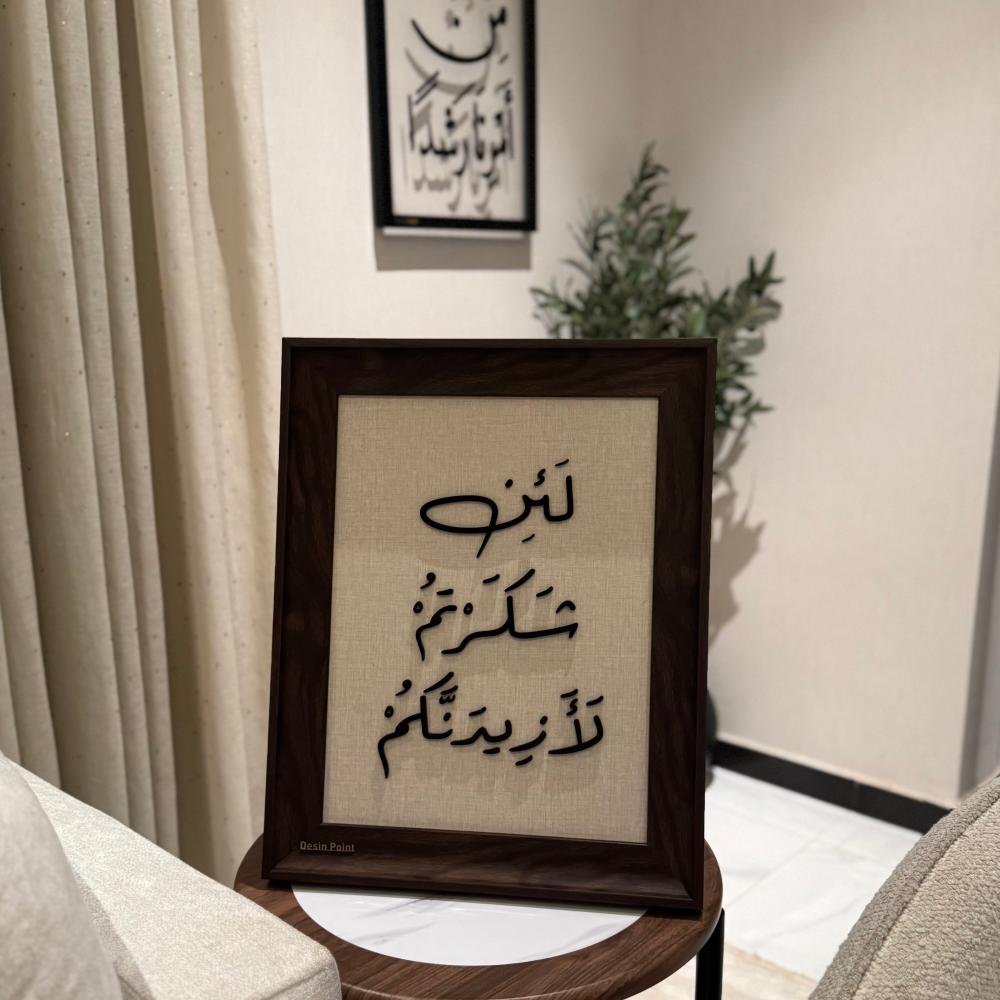 مِنْ
أَمْرِنَا رَشَدًا
لَئِن
شَكَرْتُمْ
لَأَزِيدَنَّكُمْ
Desin Point